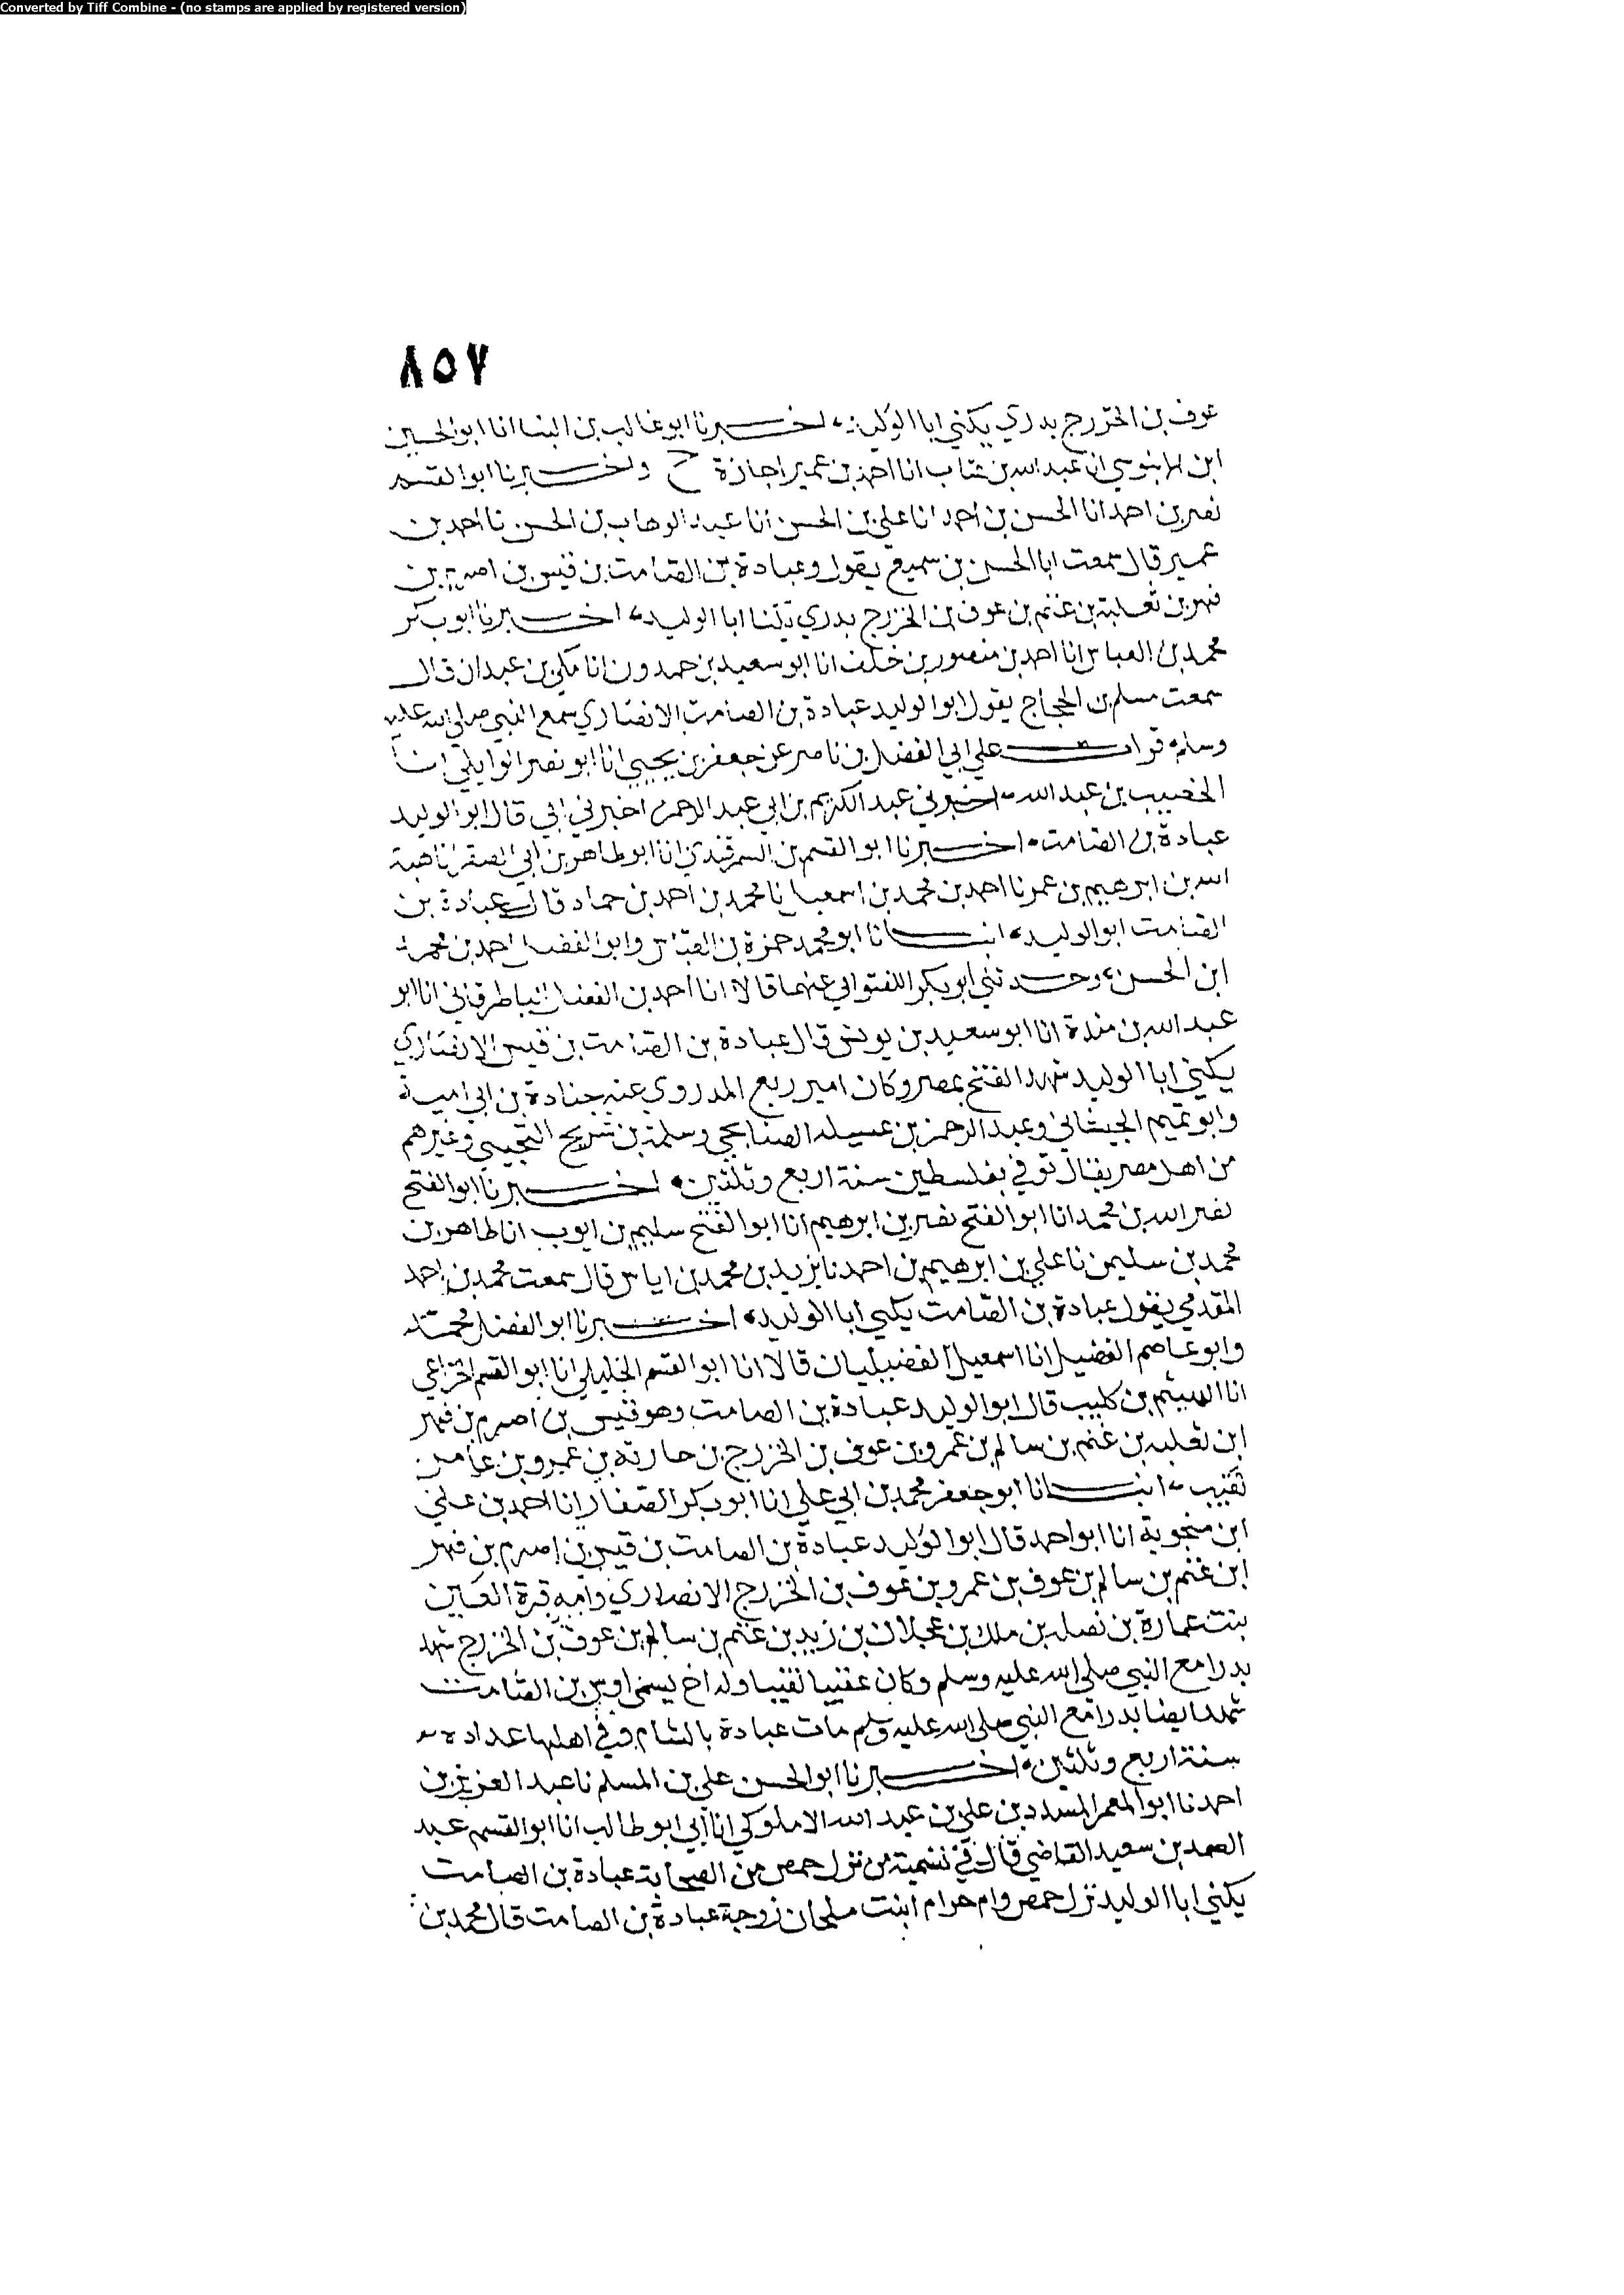 Converted by Tiff Combine - (no stamps are applied by registered version)
٨٥٧
عوف بن الخزرج بدري يكني ابا الوليد، اخبرنا ابو غالب بن البنا انا ابو الحسين
ابن الابنوسي انا عبد الله بن عتاب انا احمد بن عمير اجازة ح واخبرنا ابو القسم
نصر بن احمد انا الحسن بن احمد انا علي بن الحسن انا عبد الوهاب بن الحسن نا احمد بن
عمير قال سمعت ابا الحسن بن سميع يقول وعبادة بن الصامت بن قيس بن اصرم بن
فهر بن ثعلبة بن غنم بن عوف بن الخزرج بدري يكنا ابا الوليد، اخبرنا ابو بكر
محمد بن العباس انا احمد بن منصور بن خلف انا ابو سعيد بن حمدون انا مكي بن عبدان قال
سمعت مسلم بن الحجاج يقول ابو الوليد عبادة بن الصامت الانصاري سمع النبي صلى الله عليه
وسلم قرات علي ابي الفضل بن ناصر عن جعفر بن يحيى انا ابو نصر الوايلي انا
الخصيب بن عبد الله اخبرني عبد الكريم بن ابي عبد الرحمن اخبرني ابي قال ابو الوليد
عبادة بن الصامت اخبرنا ابو القسم بن السمرقندي انا ابو طاهر بن ابي الصقر انا هبة
الله بن ابرهيم بن عمر نا احمد بن محمد بن اسمعيل نا محمد بن احمد بن حماد قال عبادة بن
الصامت ابو الوليد، انبانا ابو محمد حمزة بن العباس وابو الفضل احمد بن محمد
ابن الحسن، وحدثني ابو بكر اللفتواني عنهما قالا انا احمد بن الفضل الباطرقاني انا ابو
عبد الله بن مندة انا ابو سعيد بن يونس قال عبادة بن الصامت بن قيس الانصاري
يكني ابا الوليد شهد الفتح بمصر وكان امير ربع المدد روي عنه جنادة بن ابي امية
وابو تميم الجيشاني وعبد الرحمن بن عسيله الصنابحي وسلمة بن شريح التجيبي وغيرهم
من اهل مصر يقال توفي بفلسطين سنة اربع وثلثين اخبرنا ابو الفتح
نصر الله بن محمد انا ابو الفتح نصر بن ابرهيم انا ابو الفتح سليم بن ايوب انا طاهر بن
محمد بن سليمن نا علي بن ابرهيم بن احمد نا يزيد بن محمد بن اياس قال سمعت محمد بن احمد
المقدمي يقول عبادة بن الصامت يكني ابا الوليد، اخبرنا ابو الفضل محمد
وابو عاصم الفضيل انا اسمعيل الفضيليان قالا انا ابو القسم الخليلي انا ابو القسم الخزاعي
انا الهيثم بن كليب قال ابو الوليد عبادة بن الصامت وهو قيس بن اصرم بن فهر
ابن ثعلبه بن غنم بن سالم بن عمرو بن عوف بن الخزرج بن حارثه بن عمرو بن عامر
نقيب، انبانا ابو جعفر محمد بن ابي علي انا ابو بكر الصفار انا احمد بن علي
ابن منجوية انا ابو احمد قال ابو الوليد عبادة بن الصامت بن قيس بن اصرم بن فهر
ابن غنم بن سالم بن عوف بن عمرو بن عوف بن الخزرج الانصاري وامه قرة العين
بنت عمارة بن نضله بن ملك بن عجلان بن زيد بن غنم بن سالم بن عوف بن الخزرج شهد
بدرا مع النبي صلى الله عليه وسلم وكان عقبيا نقيبا وله اخ يسمى اوس بن الصامت
شهد ايضا بدرا مع النبي صلى الله عليه وسلم مات عبادة بالشام وفي اهلها عداده
سنة اربع وثلثين اخبرنا ابو الحسن علي بن المسلم نا عبد العزيز بن
احمد نا ابو المعمر المسدد بن علي بن عبد الله الاملوكي انا ابي ابو طالب انا ابو القسم عبد
الصمد بن سعيد القاضي قال في تسمية من نزل حمص من الصحابة عبادة بن الصامت
يكني ابا الوليد نزل حمص وام حرام ابنت ملحان زوجة عبادة بن الصامت قال محمد بن